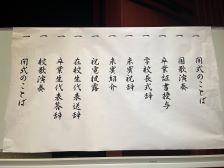 一 開式のことば
一 国歌演奏
一 卒業証書授与
一 学校長式辞
一 来賓祝辞
一 来賓紹介
一 祝電披露
一 在校生代表送辞
一 卒業生代表答辞
一 校歌演奏
一 閉式のことば